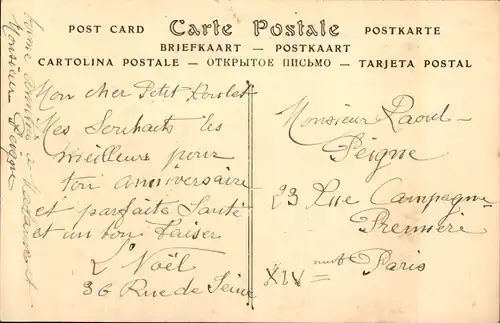 POST CARD Carte Postale POSTKARTE
BRIEFKAART — POSTKAART
CARTOLINA POSTALE — ОТКРЫТОЕ ПИСЬМО — TARJETA POSTAL
Mon cher Petit
Mes Souhaits les
meilleurs pour
ton anniversaire
et parfaite Santé
et un bon Baiser
L. Noël
36 Rue de Seine
Monsieur Raoul
Peigne
23 Rue Campagne
Première
Paris
XIV
bonne amitié à
Monsieur Peigne